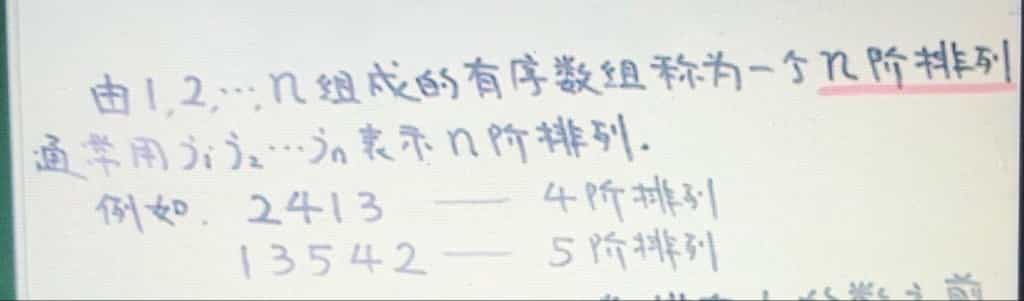 由1,2,…,n组成的有序数组称为一个n阶排列
通常用j₁j₂…jₙ表示n阶排列.
例如. 2413 —— 4阶排列
13542 —— 5阶排列